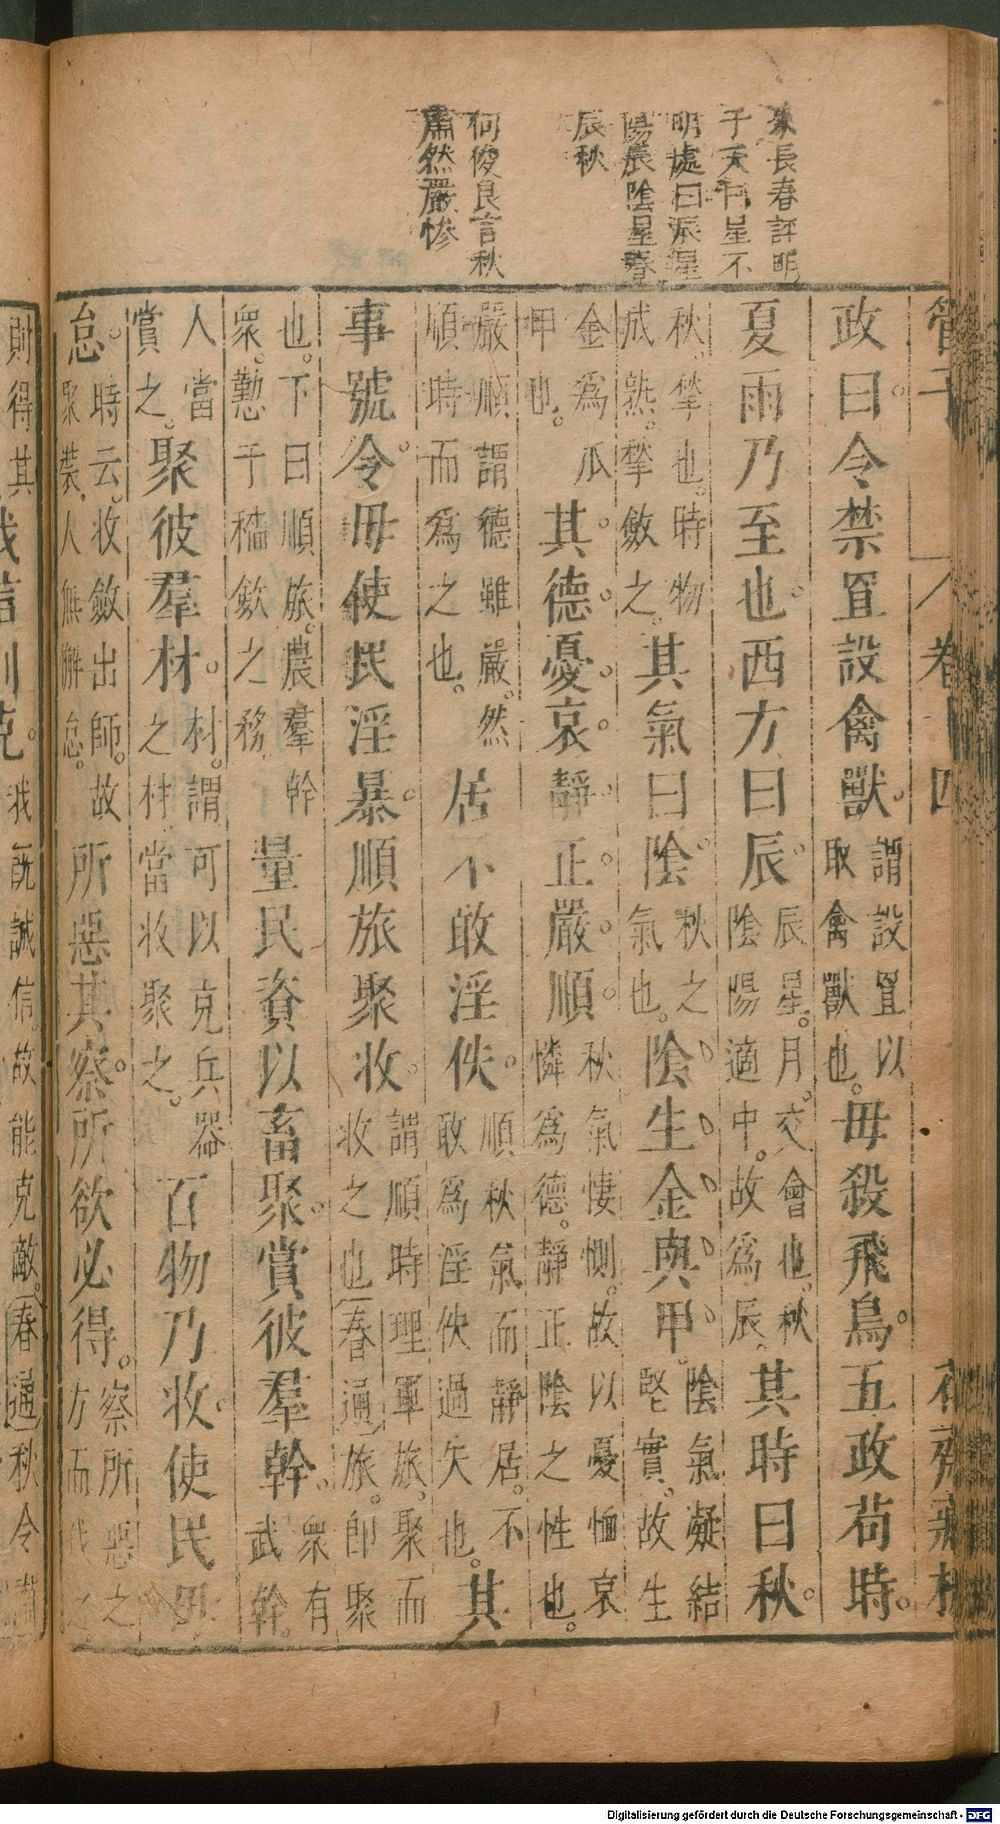 朱長春評明
于天何星不
明處曰辰星
陽辰陰星春
辰秋
何俊良言秋
肅然嚴慘
管子 卷十四 花齋藏板
政曰令禁罝設禽獸謂設罝以取禽獸也毋殺飛鳥五政苟時
夏雨乃至也西方曰辰辰星月交會也秋陰陽適中故爲辰其時曰秋
秋揫也時物成熟揫斂之其氣曰陰秋之氣也陰生金與甲陰氣凝結堅實故生
金爲爪甲也其德憂哀靜正嚴順秋氣悽惻故以憂恤哀憐爲德靜正陰之性也
嚴順謂德雖嚴然順時而爲之也居不敢淫佚順秋氣而靜居不敢爲淫佚過失也其
事號令毋使民淫暴順旅聚收謂順時理軍旅聚而收之也春通旅卽聚
也下曰順旅農羣幹衆懃于穡斂之務量民資以畜聚賞彼羣幹衆有武幹
人當賞之聚彼羣材材謂可以克兵器之材當收聚之百物乃收使民毋
怠時云收斂出師故聚裝人無懈怠所惡其察所欲必得察所惡之方而伐之
則得其我信則克我旣誠信故能克敵春通秋令
Digitalisierung gefördert durch die Deutsche Forschungsgemeinschaft - DFG